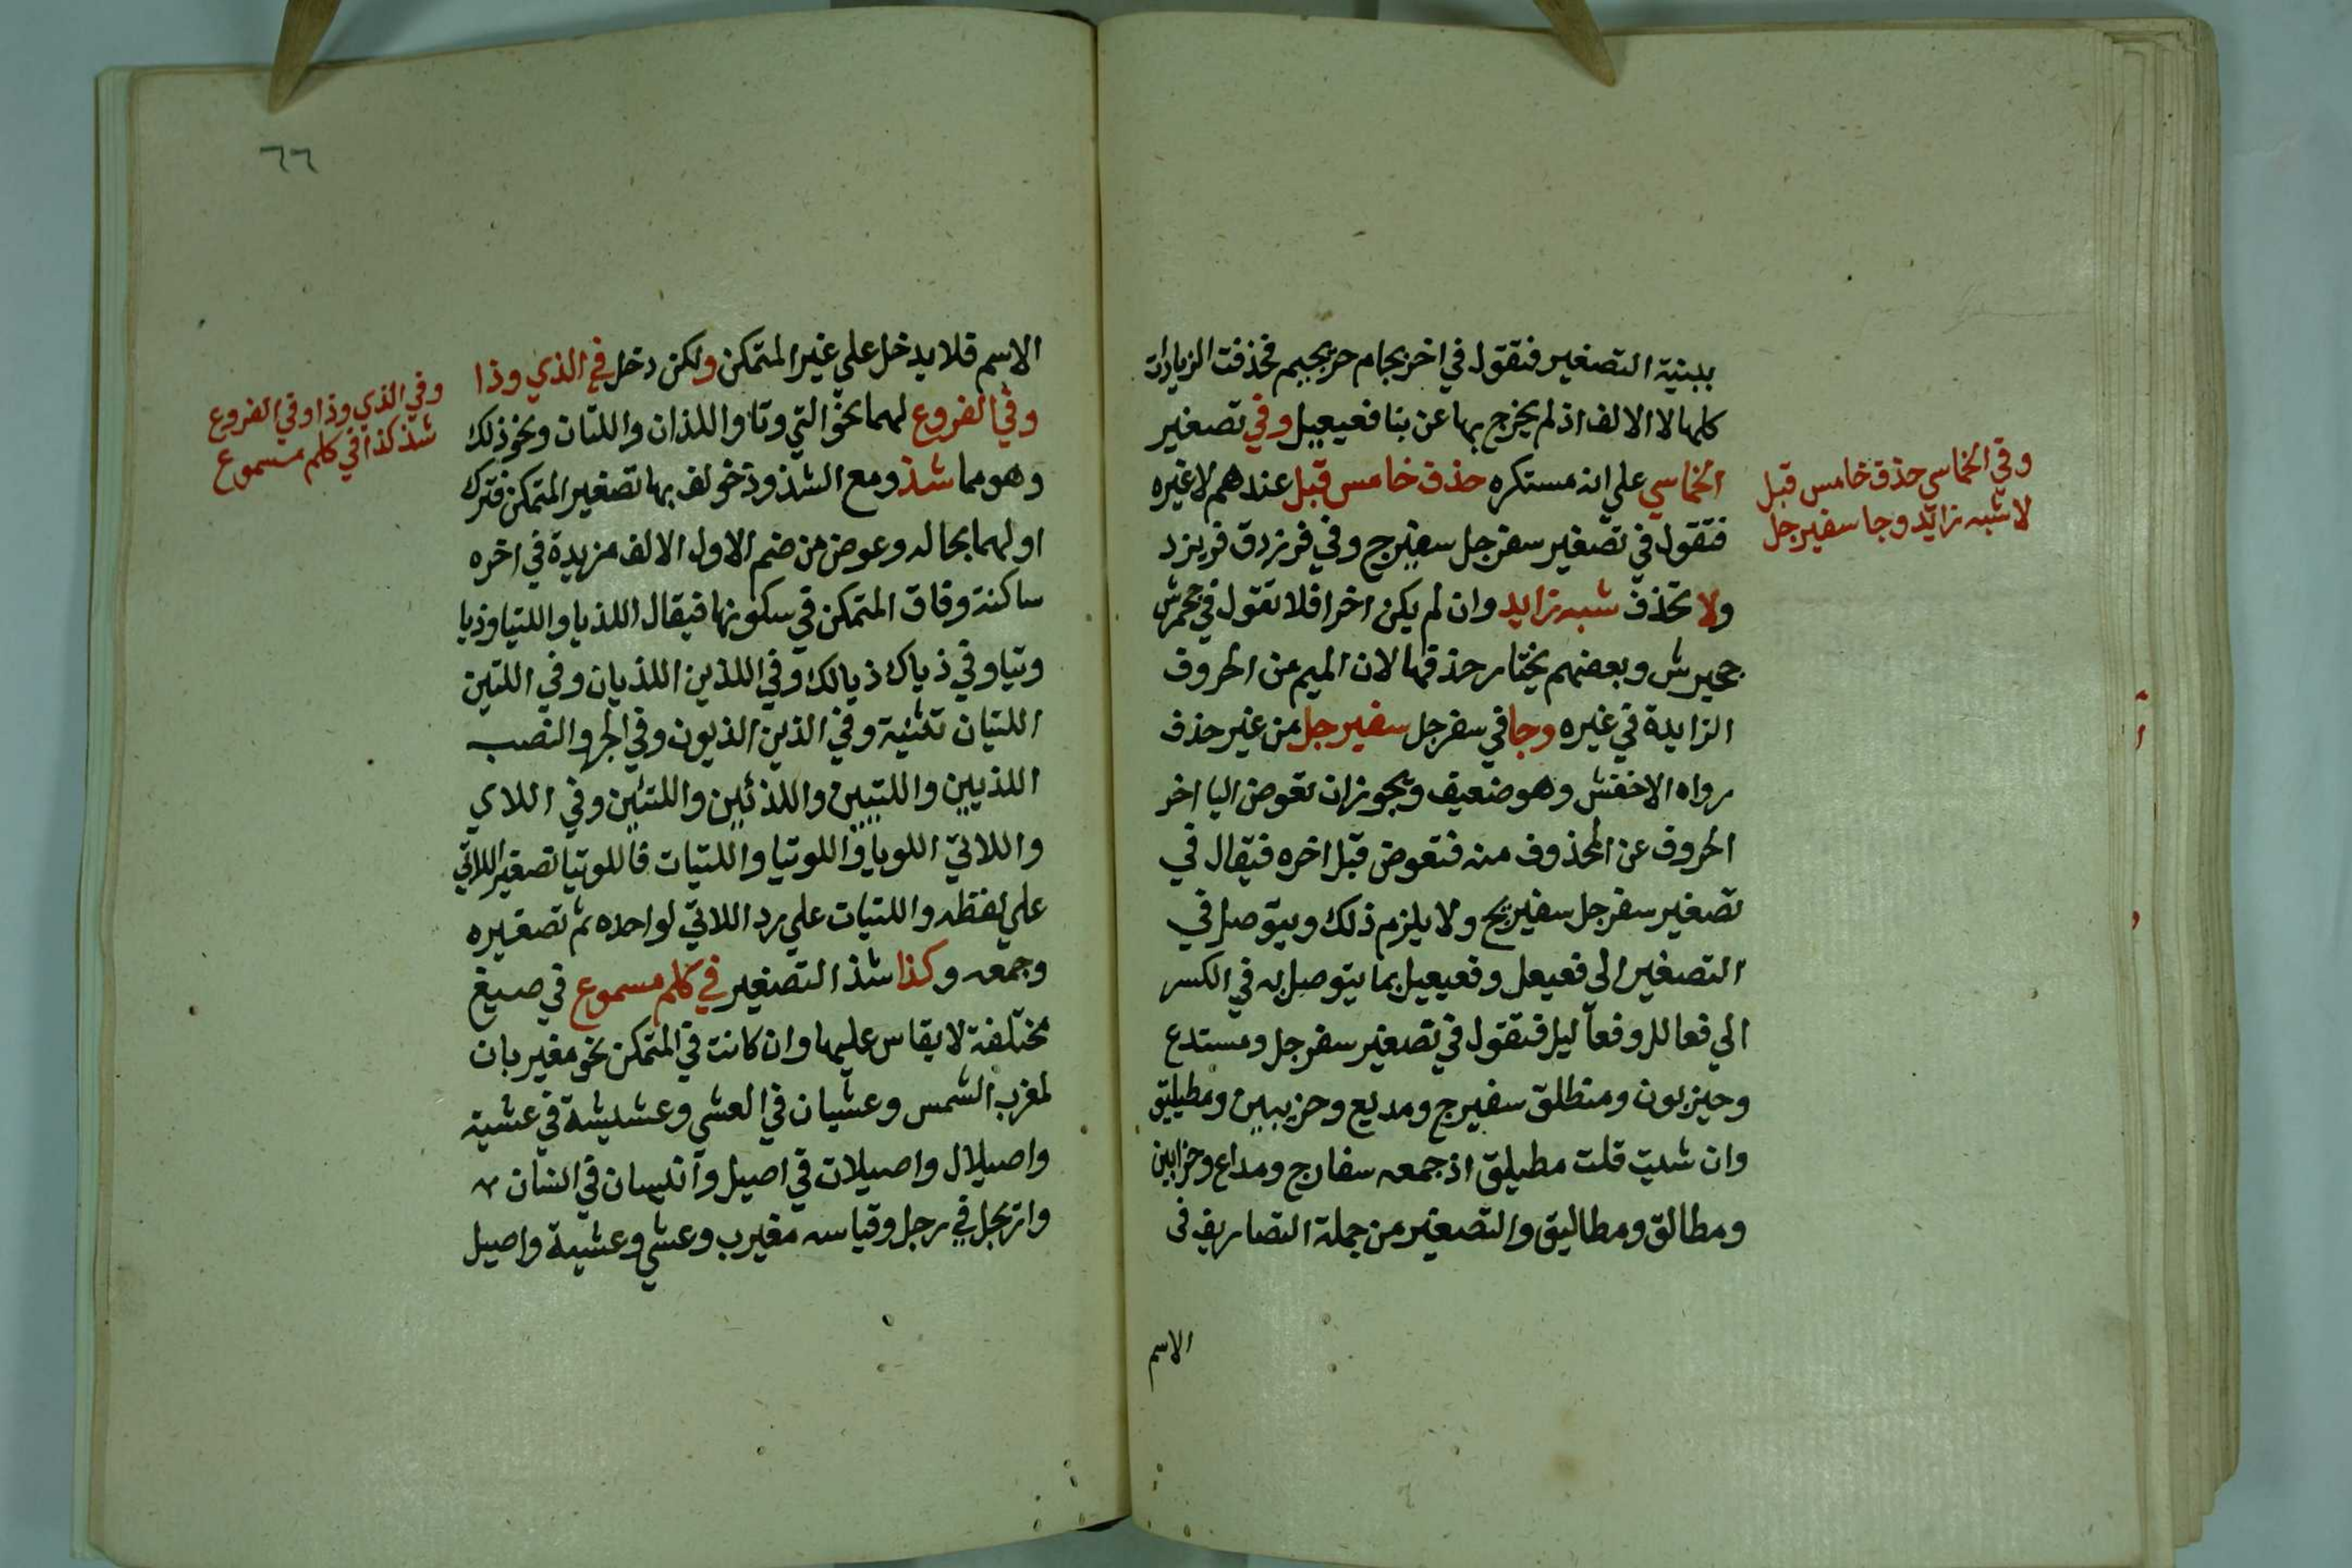 ببنية التصغير فنقول في احرنجام حريجيم فحذفت الزيادات
كلها الا الالف اذ لم يخرج بها عن بنا فعيعيل وفي تصغير
الخماسي علي انه مستكره حذف خامس قبل عندهم لا غيره
فتقول في تصغير سفرجل سفيرج وفي فرزدق فريزد
ولا تحذف شبه زايد وان لم يكن اخرا فلا تقول في جحمرش
جحيرش وبعضهم يختار حذفها لان الميم من الحروف
الزايدة في غيره وجا في سفرجل سفيرجل من غير حذف
رواه الاخفش وهو ضعيف ويجوز ان تعوض اليا اخر
الحروف عن المحذوف منه فتعوض قبل اخره فيقال في
تصغير سفرجل سفيريج ولا يلزم ذلك ويتوصل في
التصغير الي فعيعل وفعيعيل بما يتوصل به في الكسر
الي فعالل وفعاليل فتقول في تصغير سفرجل ومستدع
وحيزبون ومنطلق سفيرج ومديع وحزيبين ومطيليق
وان شيت قلت مطيلق اذ جمعه سفارج ومداع وحزابين
ومطالق ومطاليق والتصغير من جملة التصاريف في
الاسم
وفي الخماسي حذف خامس قبل
لا شبه زايد وجا سفيرجل
٦٦
الاسم فلا يدخل علي غير المتمكن ولكن دخل في الذي وذا
وفي الفروع لهما نحو التي وتا واللذان واللتان ونحو ذلك
وهو مما شذ ومع الشذوذ خولف بها تصغير المتمكن فترك
اولهما بحاله وعوض من ضم الاول الالف مزيدة في اخره
ساكنة وفاق المتمكن في سكونها فيقال اللذيا واللتيا وذيا
وتيا وفي ذياك ذيالك وفي اللذين اللذيان وفي اللتين
اللتيان تثنية وفي الذين الذيون وفي الجر والنصب
اللذيين واللتيين واللذئين واللتئين وفي اللاي
واللاتي اللويا واللوتيا واللتيات فاللوتيا تصغير اللاتي
علي لفظه واللتيات علي رد اللاتي لواحده ثم تصغيره
وجمعه وكذا شذ التصغير في كلم مسموع في صيغ
مختلفة لا يقاس عليها وان كانت في المتمكن نحو مغيربان
لمغرب الشمس وعشيان في العشي وعشيشة في عشية
واصيلال واصيلات في اصيل وانيسان في انسان
واريجل في رجل وقياسه مغيرب وعشي وعشية واصيل
وفي الذي وذا وفي الفروع
شذ كذا في كلم مسموع